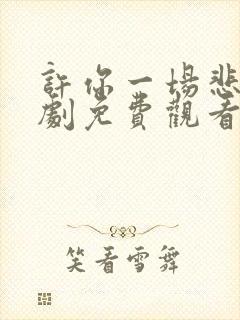 許你一場悲
劇免費觀看
笑看雪舞